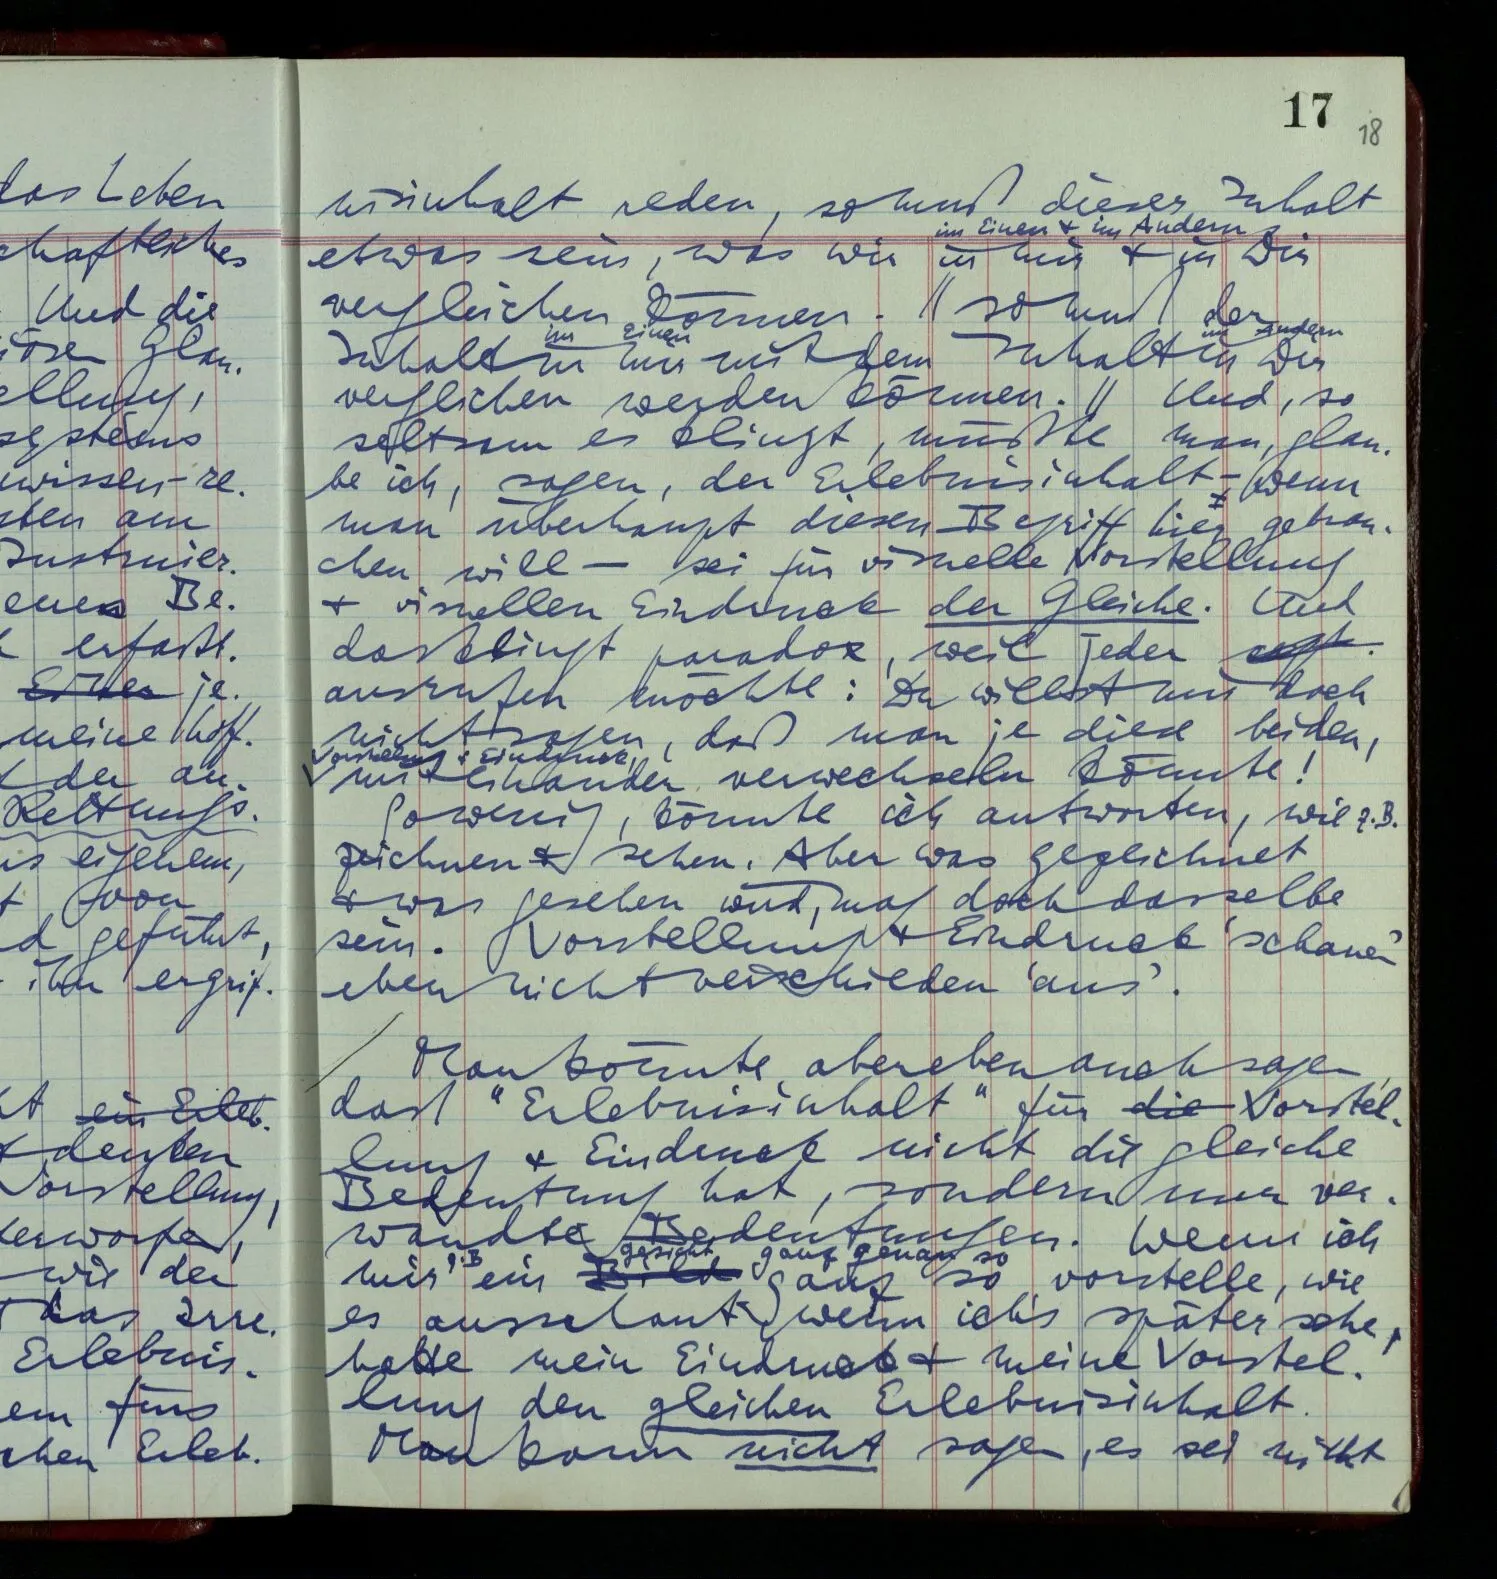 17
18
das Leben
schaftliches
Und die
Glau-
ellung,
systems
wissen-re-
sten am
Instruier-
enes Be-
erfaßt.
je-
meine Hoff-
der an-
Rettungs-
eigenem,
von
d geführt,
ihn ergrif-
ein Erleb-
denken
Vorstellung,
terworfen,
wie der
das Irre-
Erlebnis-
em fürs
chen Erleb-
nisinhalt reden, so muß dieser Inhalt
im Einen & im Andern
etwas sein, was wir in mir & in Dir
vergleichen können. // so muß der
im Einen im andern
Inhalt in mir mit dem Inhalt in Dir
verglichen werden können. // Und, so
seltsam es klingt, müßte man, glau-
be ich, sagen, der Erlebnisinhalt – wenn
man überhaupt diesen Begriff hier gebrau-
chen will – sei für visuelle Vorstellung
& visuellen Eindruck der Gleiche. Und
das klingt paradox, weil jeder sagt
ausrufen möchte: Du willst mir doch
nicht sagen, daß man je diese beiden,
Vorstellung & Eindruck,
miteinander verwechseln könnte!
Sowenig, könnte ich antworten, wie z.B.
zeichnen & sehen. Aber was gezeichnet
& was gesehen wird, mag doch dasselbe
sein. Vorstellung & Eindruck 'schauen'
eben nicht verschieden 'aus'.
Man könnte aber eben auch sagen,
daß "Erlebnisinhalt" für die Vorstel-
lung & Eindruck nicht die gleiche
Bedeutung hat, sondern nur ver-
wandte Bedeutungen. Wenn ich
z.B. gesicht ganz genau so
mir ein Bild ganz so vorstelle, wie
es ausschaut, wenn ich's später sehe,
hatte mein Eindruck & meine Vorstel-
lung den gleichen Erlebnisinhalt.
Man kann nicht sagen, es sei nicht